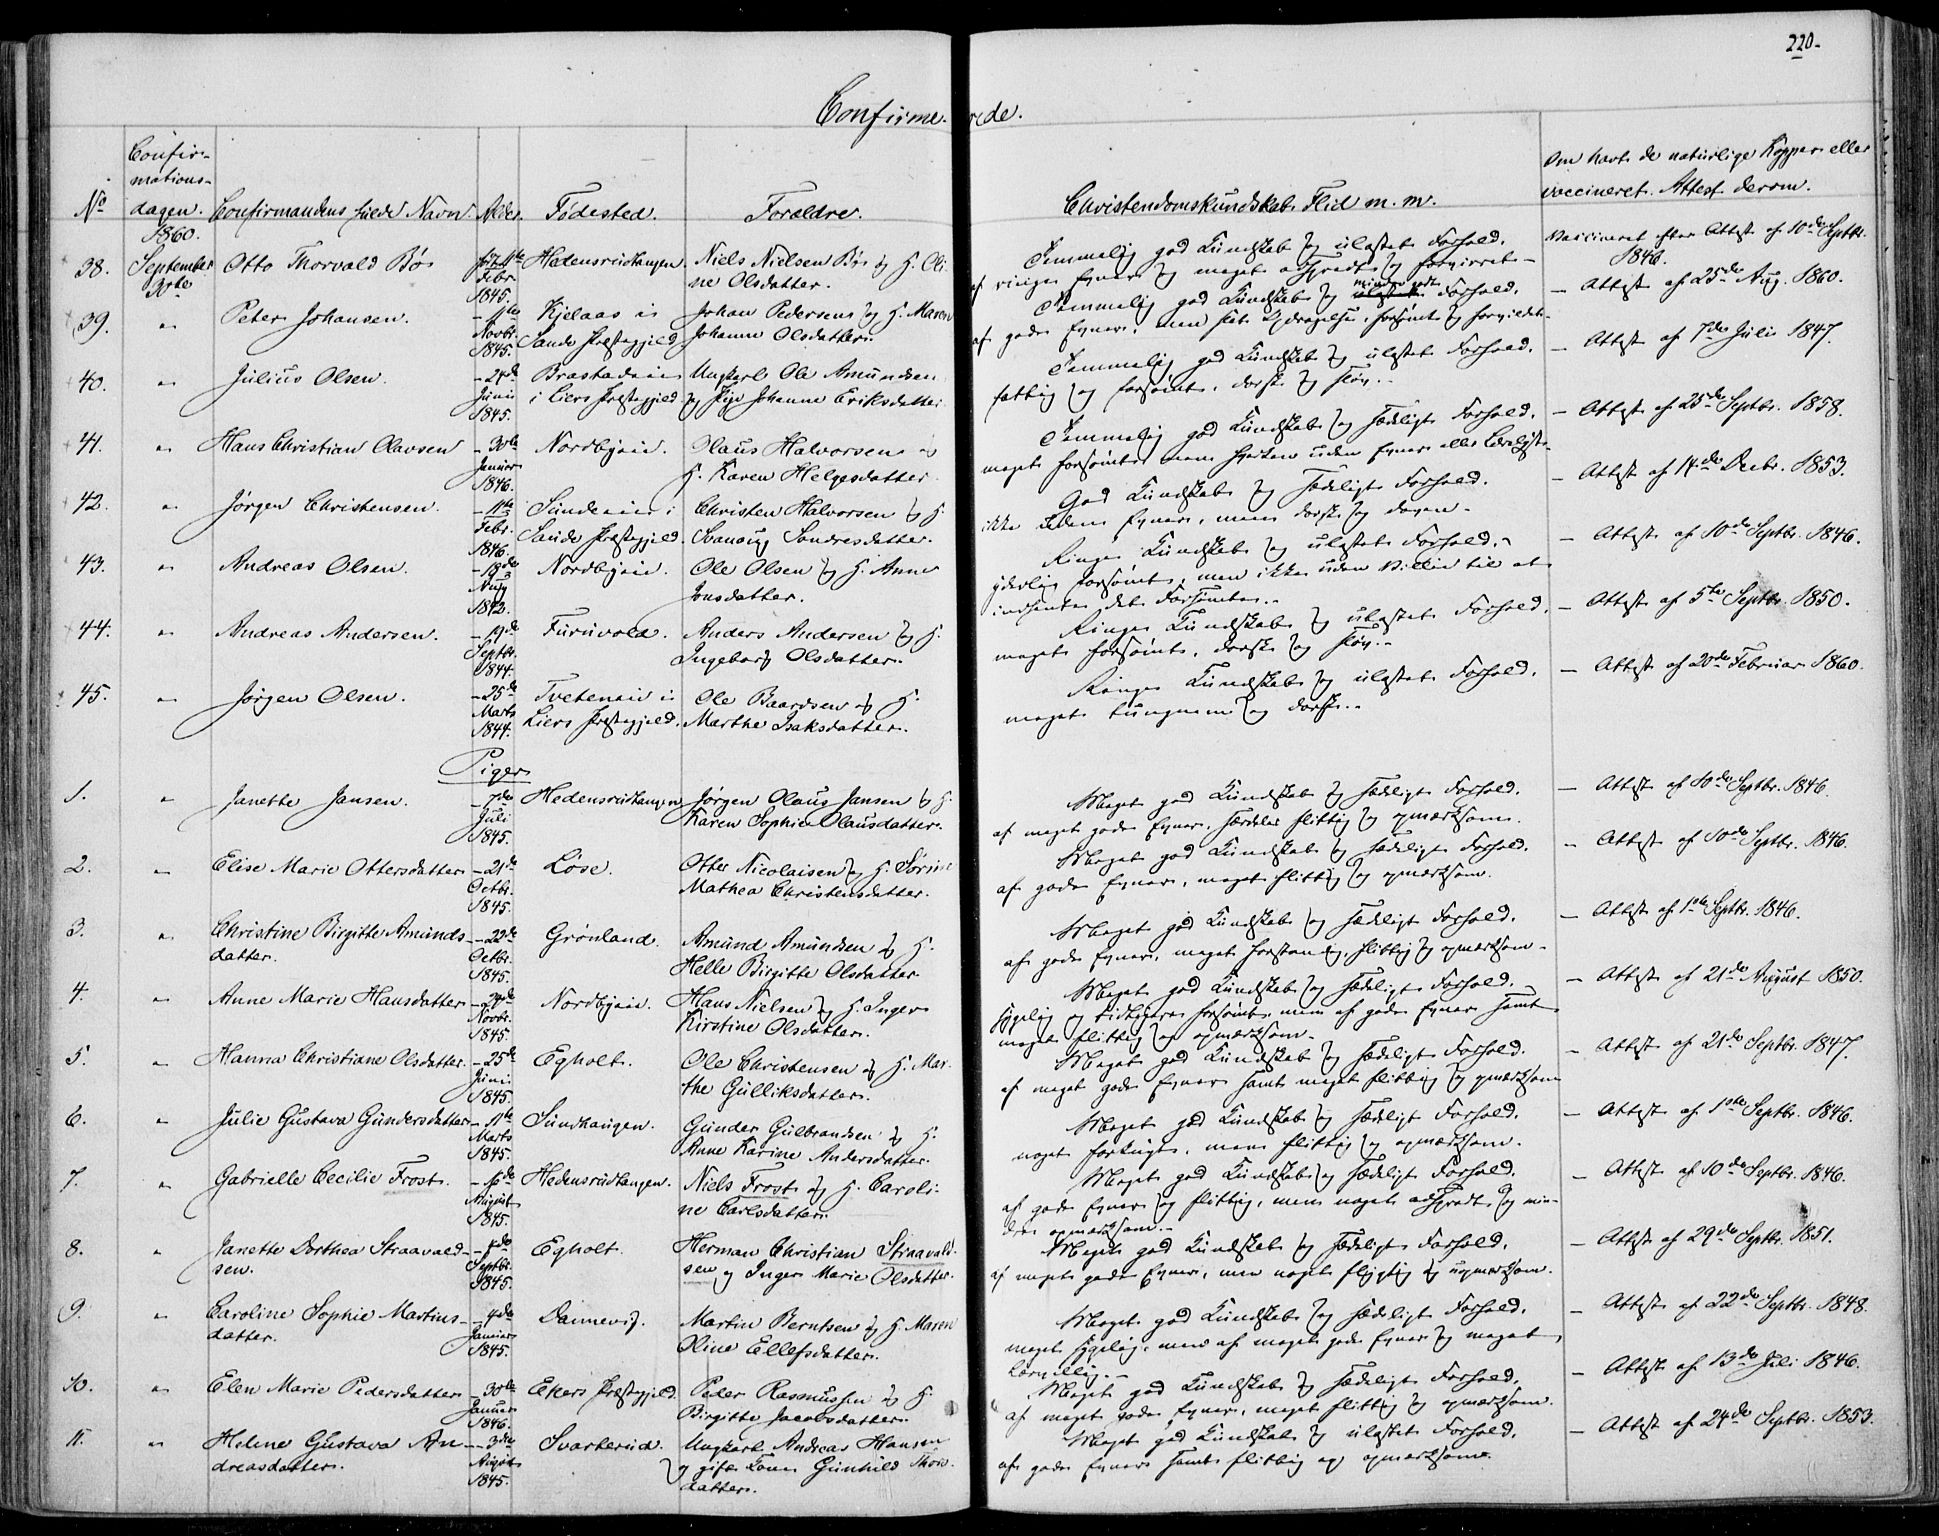 220.
Confirme- rede.
No
Confir-
mations-
dagen.
Confirmandens fulde Navn.
Alder.
Fødested.
Forældre.
Christendomskundskab. Flid m. m.
Om havt de naturlige Kopper eller
vaccineret. Attest derom.
1860.
38. September 30te Otto Thorvald Bø
Febr. 1845.
Hedensrudtangen
Niels Nielsen Bø og H. Oli-
ne Olsdatter.
Temmelig god Kundskab og ulastet Forhold.
af ringe Evner og meget adspredt og forvirret.
Vaccineret efter Attest af 10de Septbr.
1846.
39. " Peter Johansen.
- 11te Novbr. 1845.
Kjelaas i
Sande Præstegjeld.
Johan Pedersen og H. Maren
Johanne Olsdatter.
Temmelig god Kundskab og mindre godt Forhold.
af gode Evner, men slet Opdragelse, forsømt og forvildet.
- Attest af 25de Aug. 1860.
40. " Julius Olsen.
- 24de Juni 1845.
Brastadeie
i Liers Præstegjeld.
Ungkarl Ole Amundsen
og Pige Johanne Eriksdatter
Temmelig god Kundskab og ulastet Forhold.
fattig og forsømt, dorsk og sløv.
- Attest af 7de Juli 1847.
41. " Hans Christian Olavsen
- 30te Januar 1846.
Nordbyeie.
Olaus Halvorsen og
H. Karen Helgesdatter
Temmelig god Kundskab og sædeligt Forhold.
meget forsømt men hverken uden Evner eller Lærelyst.
- Attest af 25de Septbr. 1858.
42. " Jørgen Christensen.
- 11te Febr. 1846.
Sundeeie i
Sande Præstegjeld.
Christen Halvorsen og H.
Svanaug Sondresdatter.
God Kundskab og sædeligt Forhold.
ikke uden Evner, men dorsk og doven.
- Attest af 14de Decbr. 1853.
43. " Andreas Olsen.
- 19de Aug 1843.
Nordbyeie.
Ole Olsen og H. Anne
Jonsdatter.
Ringe Kundskab og ulastet Forhold.
yderlig forsømt, men ikke uden Villie til at
indhente det Forsømte.
- Attest af 10de Septbr. 1846.
44. " Andreas Andersen.
- 19de Septbr. 1844.
Furuvold.
Anders Andersen og H.
Ingeborg Olsdatter.
Ringe Kundskab og ulastet Forhold.
meget forsømt, dorsk og sløv.
- Attest af 5te Septbr. 1850.
45. " Jørgen Olsen.
- 25de Marts 1844.
Tveteneie i
Liers Præstegjeld.
Ole Baardsen og H.
Marthe Isaksdatter.
Ringe Kundskab og ulastet Forhold.
meget tungnem og dorsk.
- Attest af 20de Februar 1860.
Piger
1. " Janette Jansen.
- 7de Juli 1845.
Hedensrudtangen
Jørgen Olaus Jansen og H.
Karen Sophie Olausdatter.
Meget god Kundskab og sædeligt Forhold.
af meget gode Evner, særdeles flittig og opmærksom.
- Attest af 10de Septbr. 1846.
2. " Elise Marie Ottersdatter
- 21de Octbr. 1845.
Løse.
Otter Nicolaisen og H. Sørine
Mathea Christensdatter.
Meget god Kundskab og sædeligt Forhold.
af gode Evner, meget flittig og opmærksom.
- Attest af 10de Septbr. 1846.
3. " Christine Birgitte Amunds-
datter.
- 22de Octbr. 1845.
Grønland.
Amund Amundsen og H.
Helle Birgitte Olsdatter
Meget god Kundskab og sædeligt Forhold.
af gode Evner, meget forstandig, flittig og opmærksom.
- Attest af 1ste Septbr. 1846.
4. " Anne Marie Hansdatter
- 24de Novbr. 1845.
Nordbyeie.
Hans Nielsen og H. Inger
Kirstine Olsdatter.
Meget god Kundskab og sædeligt Forhold.
sygelig og tidligere forsømt, men af gode Evner samt
meget flittig og opmærksom.
- Attest af 21de August 1850.
5. " Hanna Christiane Olsdatter.
- 25de Juni 1845.
Egholt.
Ole Christensen og H. Mar-
the Gulliksdatter.
Meget god Kundskab og sædeligt Forhold.
af meget gode Evner samt meget flittig og opmærksom
- Attest af 21de Septbr. 1847.
6. " Julie Gustava Gundersdatter
- 11te Marts 1845.
Sundhaugen.
Gunder Gulbrandsen og H.
Anne Karine Andersdatter.
Meget god Kundskab og sædeligt Forhold.
noget forknyt, men flittig og opmærksom.
- Attest af 1ste Septbr. 1846.
7. " Gabrielle Cecilie Frost.
August 1845.
Hedensrudtangen.
Niels Frost og H. Caroli-
ne Carlsdatter.
Meget god Kundskab og sædeligt Forhold.
af gode Evner og flittig, men noget adspredt og min-
dre opmærksom.
- Attest af 10de Septbr. 1846.
8. " Janette Dorthea Straavald-
sen.
Septbr. 1845.
Egholt.
Herman Christian Straavald-
sen og Inger Marie Olsdatter.
Meget god Kundskab og sædeligt Forhold.
af meget gode Evner, men noget flygtig og uopmærksom.
- Attest af 29de Septbr. 1851.
9. " Caroline Sophie Martins-
datter.
- 4de Januar 1845.
Dannevig.
Martin Berntsen og H. Maren
Oline Ellefsdatter.
Meget god Kundskab og sædeligt Forhold.
meget sygelig, men af meget gode Evner og meget
lærvillig.
- Attest af 22de Septbr. 1848.
10. " Elen Marie Pedersdatter
- 30te Januar 1846.
Ekers Præstegjeld.
Peder Rasmussen og H.
Birgitte Jacobsdatter.
Meget god Kundskab og sædeligt Forhold.
af meget gode Evner, meget flittig og opmærksom.
- Attest af 13de Juli 1846.
11. " Helene Gustava An-
dreasdatter.
- 3die August 1845.
Svarterud.
Ungkarl Andreas Hansen
og gifte Kone Gunhild Thors-
datter.
Meget god Kundskab og ulastet Forhold.
af gode Evner samt flittig og opmærksom.
- Attest af 24de Septbr. 1853.